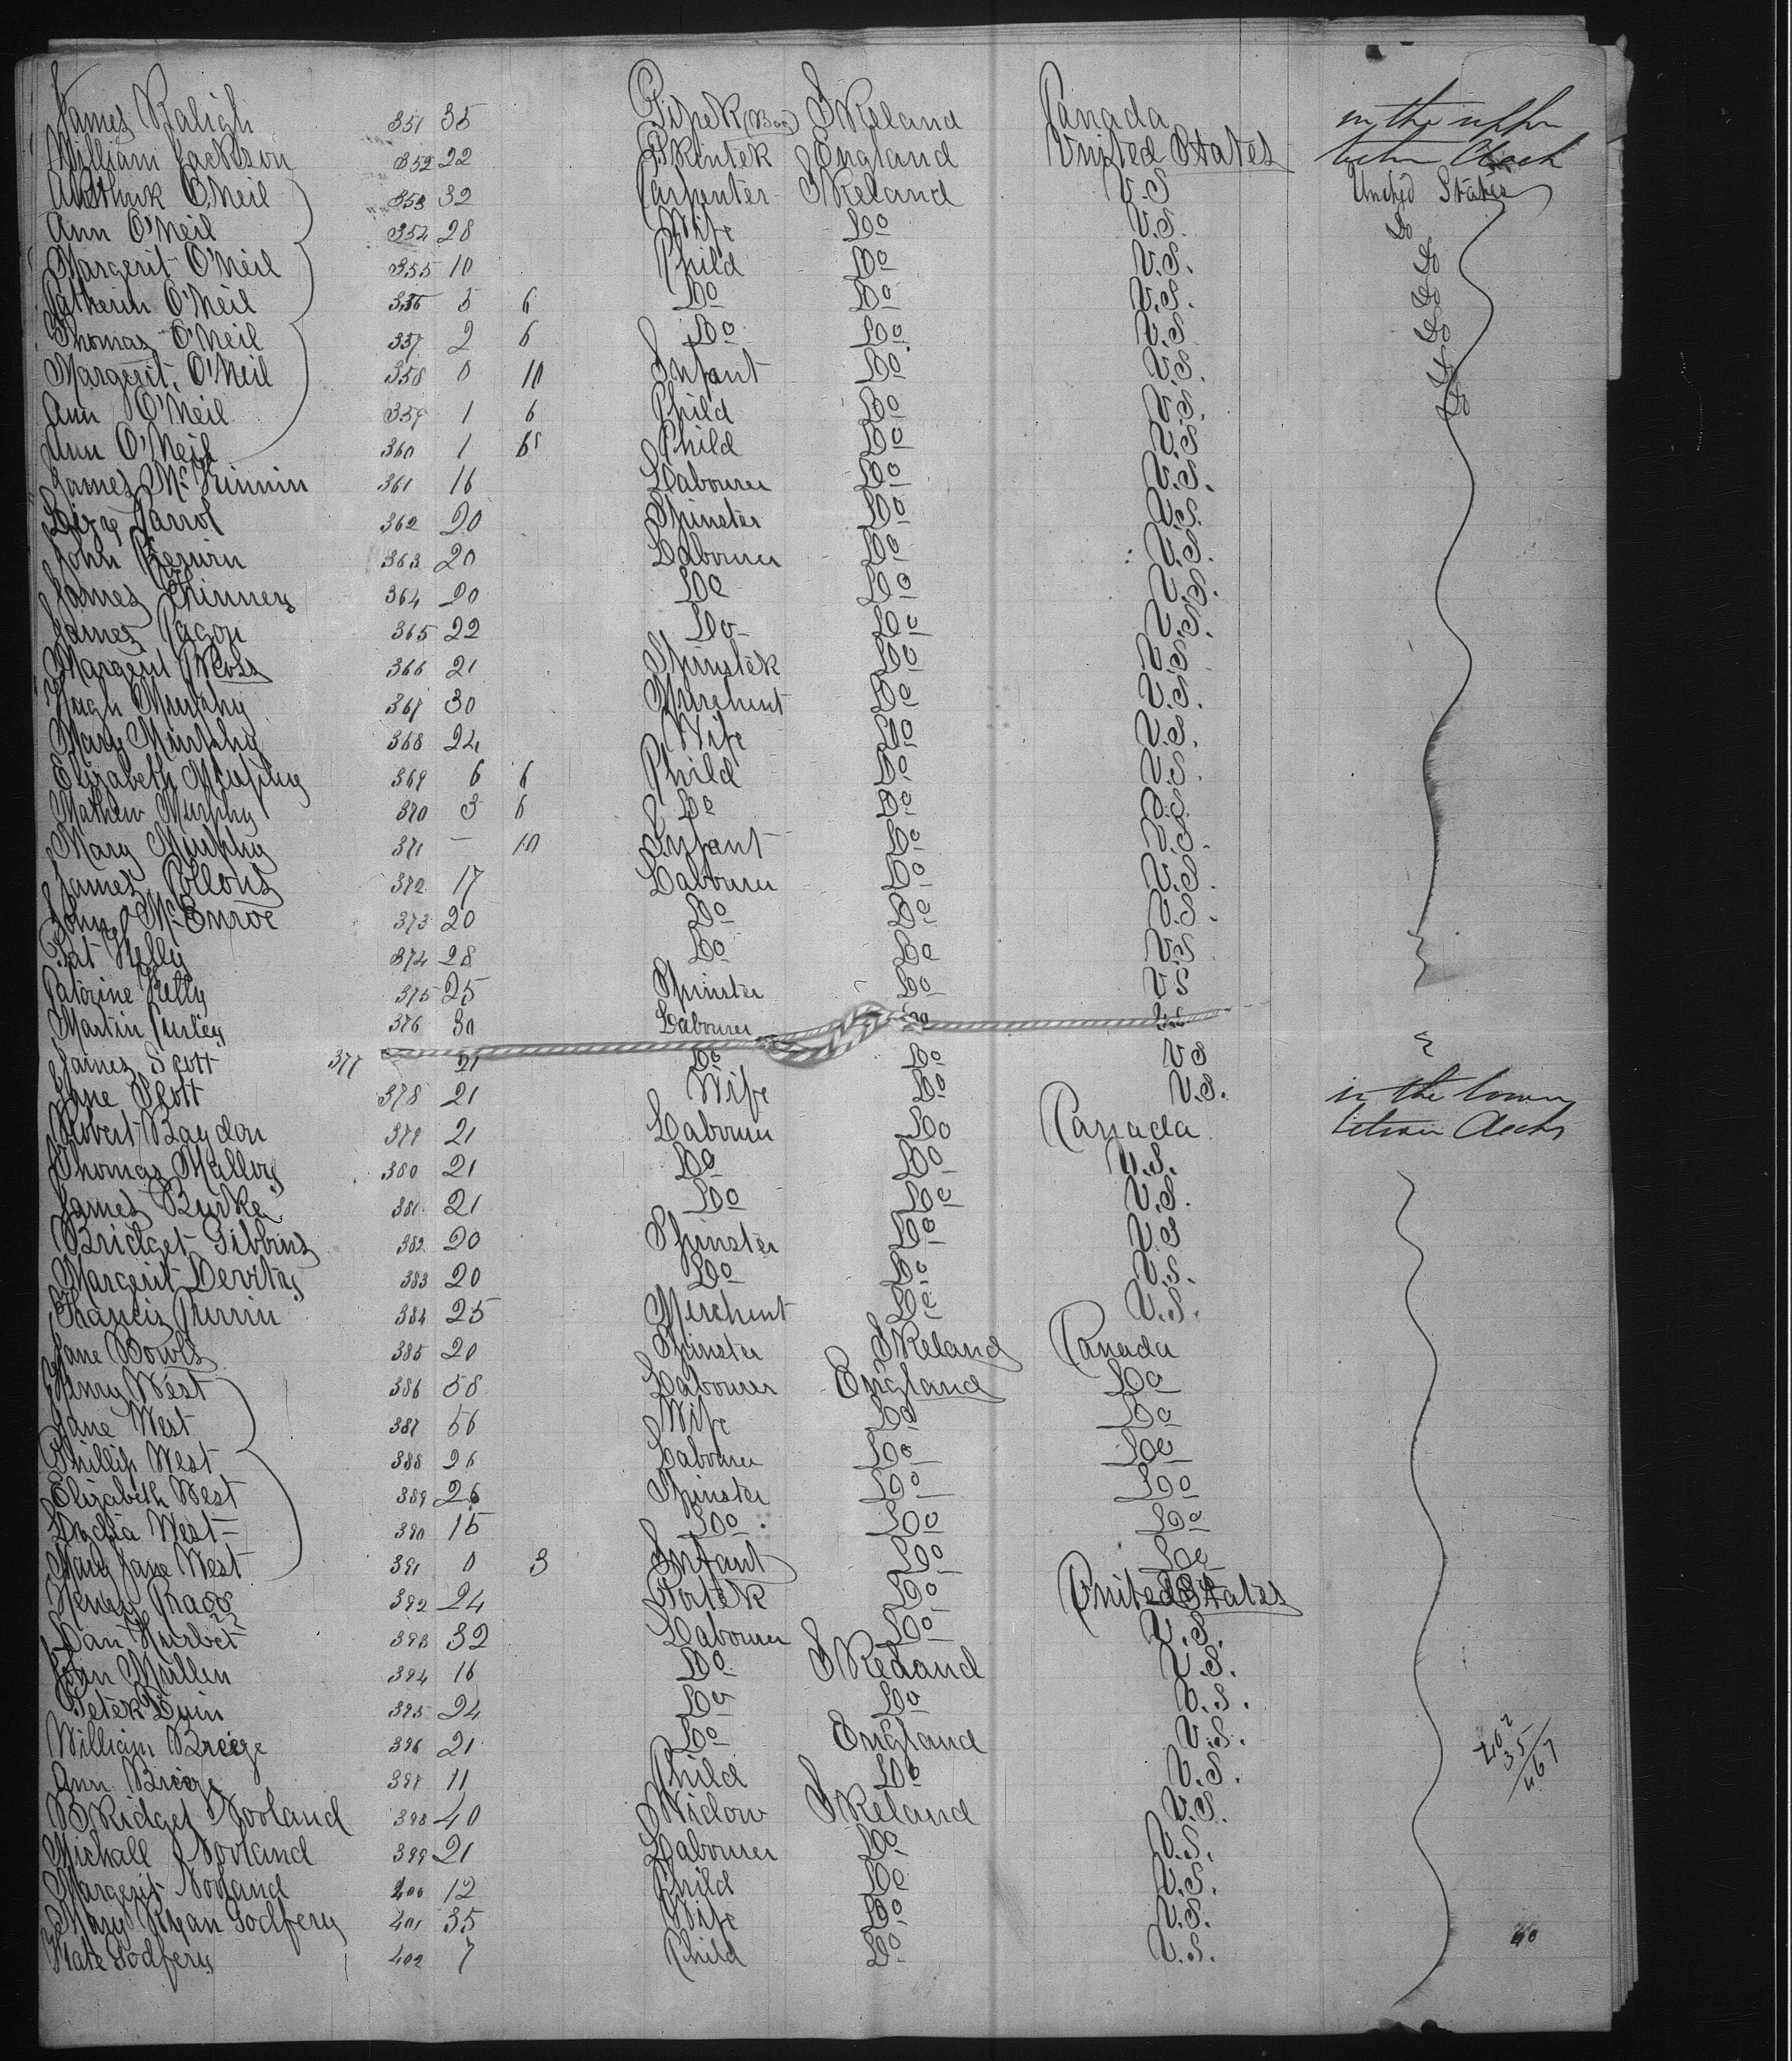 James Raligh 351 35 Piper (Bag) IReland Canada in the upper
William Jackson 352 22 PRinteR England United States Deck
O'Neil 353 32 Carpenter IReland U.S United States
Ann O'Neil 354 28 Wife Do U.S. Do
Margerit O'Neil 355 10 Child Do U.S. Do
Catherin O'Neil 356 5 6 Do Do U.S. Do
Thomas O'Neil 357 2 6 Do Do U.S Do
Margerit O'Neil 358 0 10 Infant Do U.S. Do
Ann O'Neil 359 1 6 Child Do U.S. Do
Ann O'Neil 360 1 6 Child Do U.S
James Mc 361 16 Labourer Do U.S.
Carrol 362 20 Spinster Do U.S.
John 363 20 Labourer Do U.S.
James 364 20 Do Do U.S.
James 365 22 Do Do U.S.
Margerit 366 21 SpinsteR Do U.S.
Hugh Murphy 367 30 Merchent Do U.S.
Mary Murphy 368 24 Wife Do U.S.
Elizabeth Murphy 369 6 6 Child Do U.S.
Mathew Murphy 370 3 6 Do Do U.S
Mary Murphy 371 — 10 Infant Do U.S.
James 372 17 Labourer Do U.S.
John McEnroe 373 20 Do Do U.S.
Pat Kelly 374 28 Do Do U.S
Catorine Kelly 375 25 Spinster Do U S
Martin Curley 376 30 Labourer Do U.S
James Scott 377 21 Do Do U S
Jane Scott 378 21 Wife Do U.S. in the lower
Robert Baydon 379 21 Labourer Do Canada Decks
Thomas Malloy 380 21 Do Do U.S.
James Burke 381 21 Do Do U.S.
Bridget Gibbins 382 20 Spinster Do U S
Margerit Devitay 383 20 Do Do U.S.
Francis 384 25 Merchent Do U.S.
Jane Bowls 385 20 Spinster IReland Canada
Henry West 386 58 Labourer England Do
Jane West 387 56 Wife Do Do
Phillip West 388 26 Labourer Do Do
Elizabeth West 389 26 Spinster Do Do
Lydia West 390 15 Do Do Do
Mary Jane West 391 0 3 Infant Do Do
Henry 392 24 PorteR Do United States
Dan Hurbet 393 32 Labourer Do U.S.
John Mullen 394 16 Do IReland U.S.
PeteR Quin 395 24 Do Do U.S.
William Breeze 396 21 Do England U.S.
Ann Breeze 397 11 Child Do U.S.
BRidget Norland 398 40 Widow IReland U.S.
Michall Norland 399 21 Labourer Do U.S.
Margerit Norland 400 12 Child Do U.S.
Mary Ryan Godfery 401 35 Wife Do U.S.
Kate Godfery 402 7 Child Do U.S.